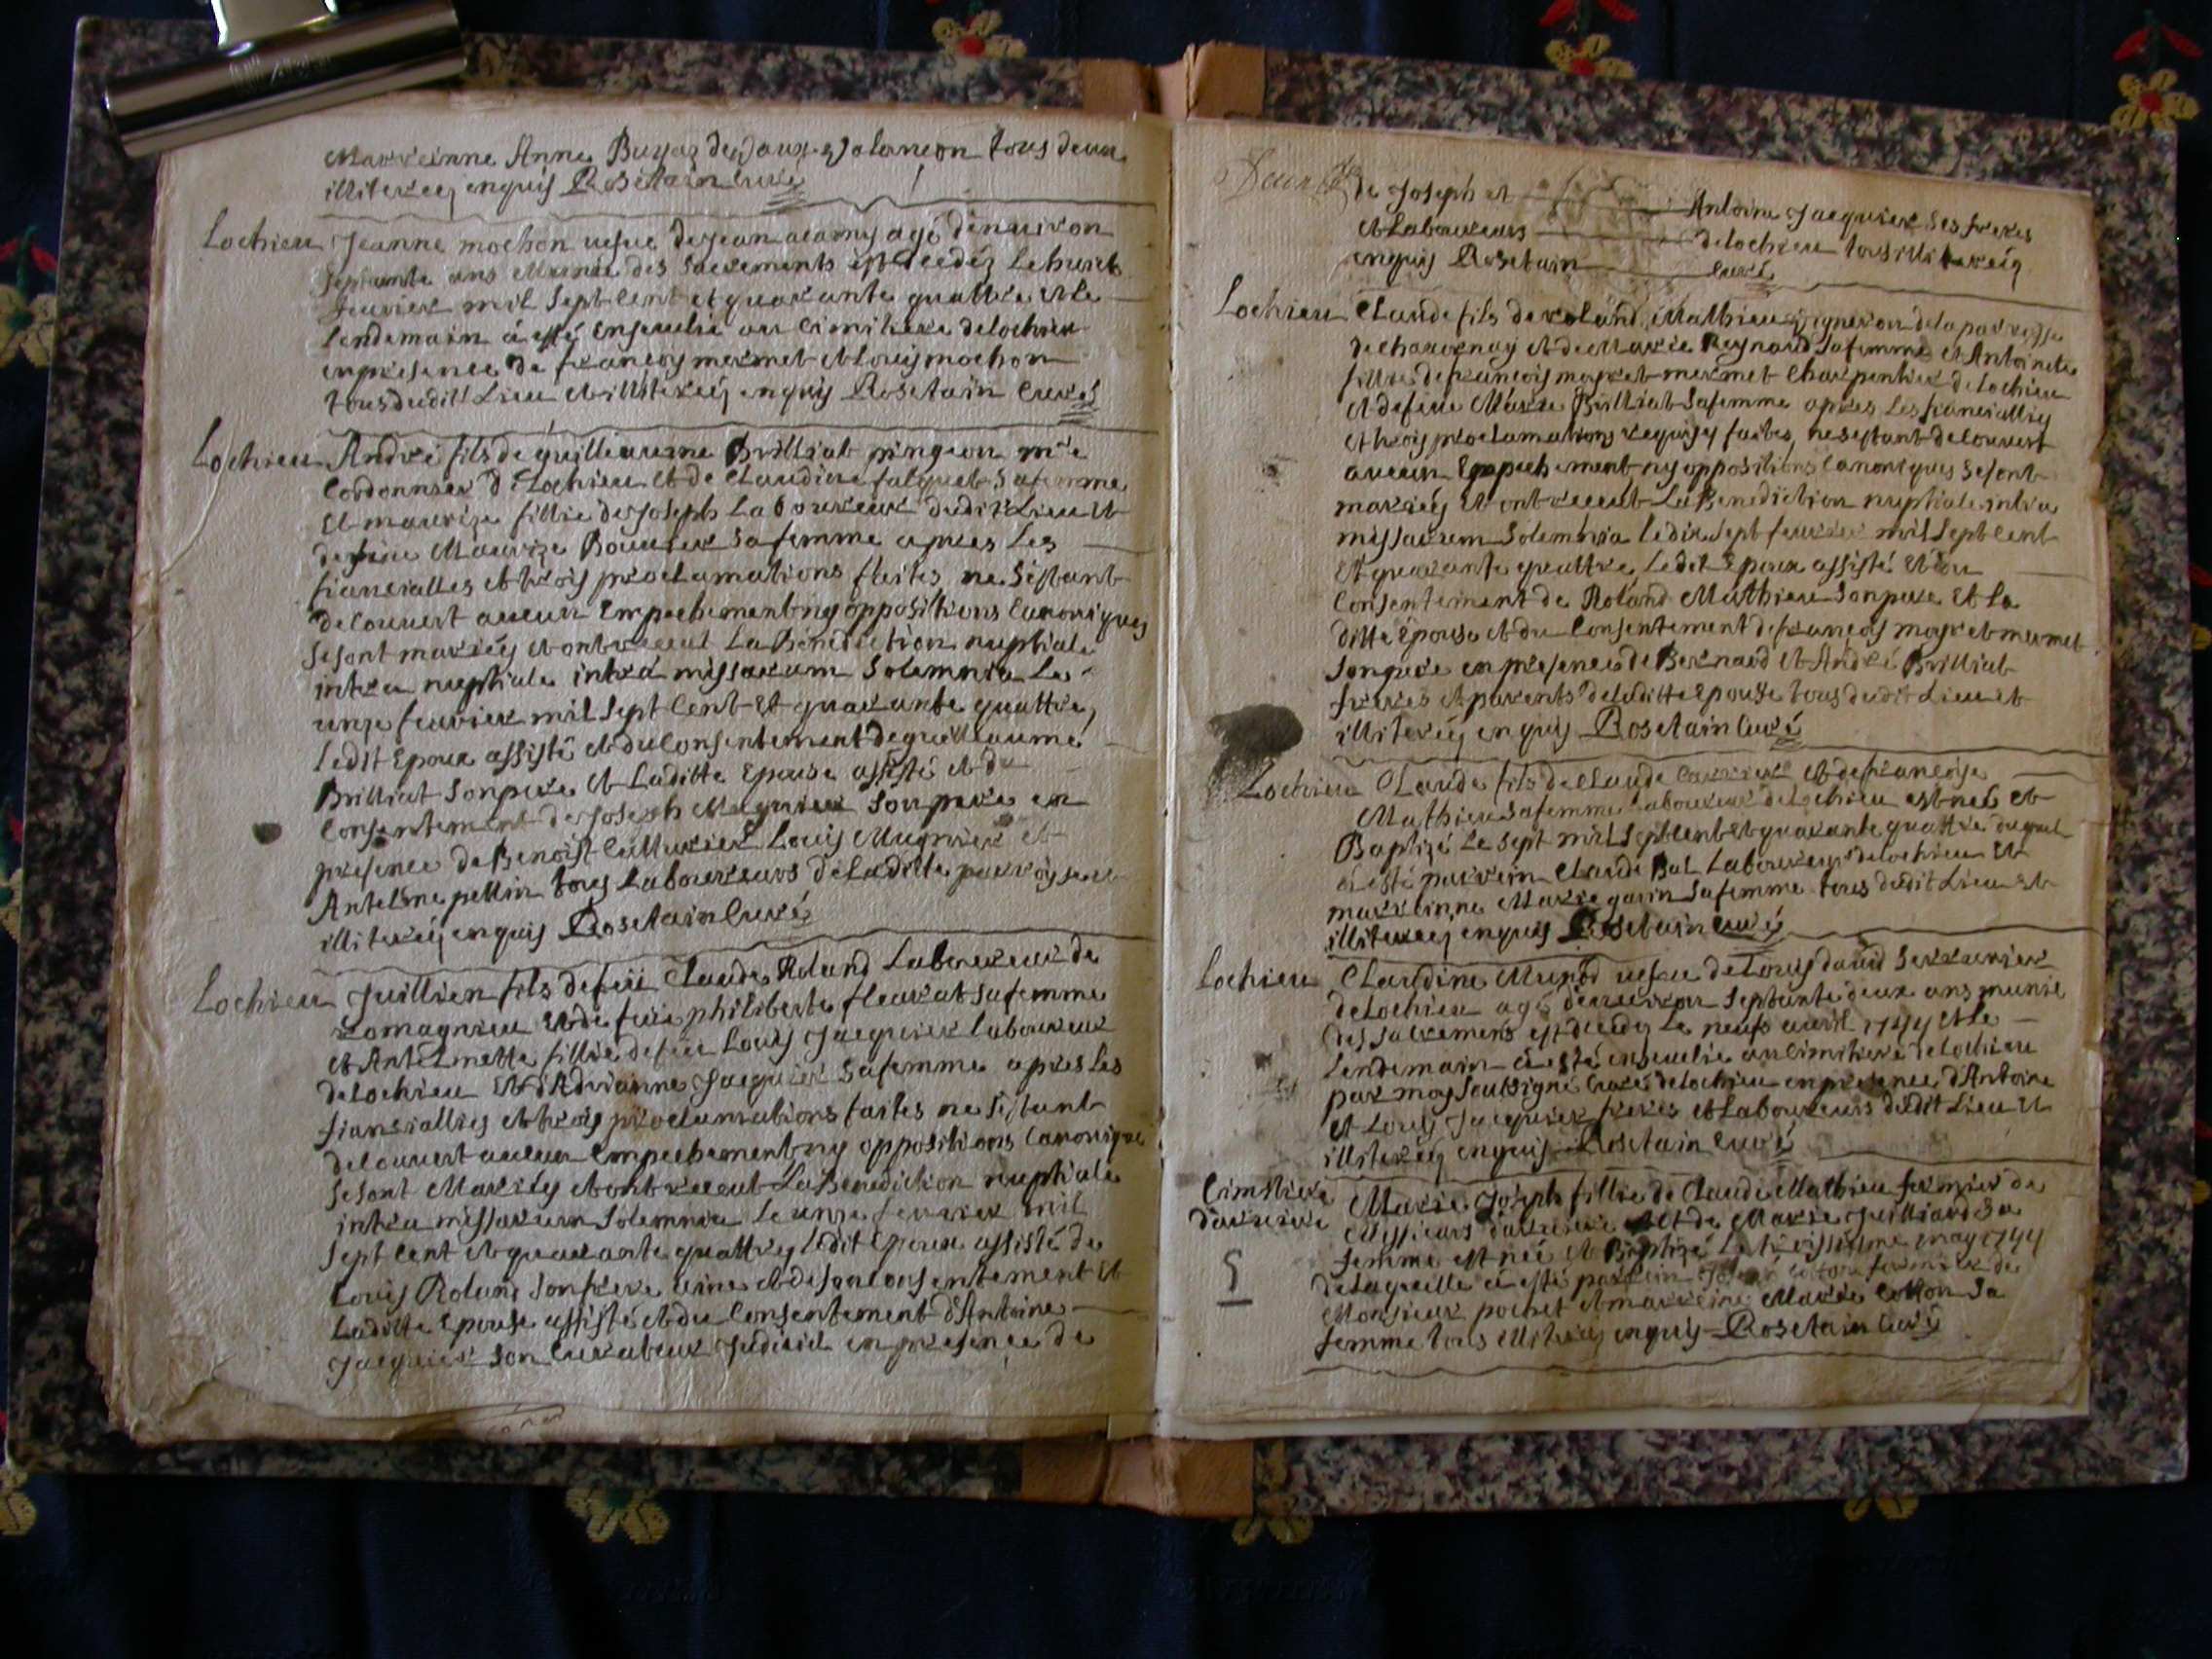 Marreinne Anne Buyaz de Vaux Valancon tous deux
illitereéz enquis Rosetain Curé
Lochieu Jeanne mochon uefue de Jean adamy agé d'enuiron
septante ans Munie des sacrements est decedéz le huict
feurier mil sept Cent et quarante quattre et le
lendemain á esté Enseuelie au Cimitiere de Lochieu
enpresence de francois mermet et Louis mochon
tous dudit Lieu et illitereéz enquis Rosetain Curéz
Lochieu André fils de guilliaume Brilliat pingeon mre
Cordonnier de Lochieu et de Claudine falquet sa femme
Et maurize fillie de Joseph Laboureur dudit Lieu et
defeue Maurize Bouuier sa femme apres Les
fiancialles et trois proclamations faites ne sestant
découuert aucun Empechement ny oppositions Canoniques
se sont mariéz et ont receut La Benediction nuptiale
intra nuptiale intrá missarum solemnia Le
unze feurier mil sept Cent Et quarante quattre,
ledit Epoux assisté et du Consentement de guilleaume
Brilliat son pere et Laditte Epouse assisté et du
Consentement de Joseph Mugnier son pere en
presence de Benoist Cutturier Louis Mugnier et
Antelme pellin tous Laboureurs de Laditte parroisse et
illitereéz enquis Rosetain Curé
Lochieu Juillien fils defeü Claude Roland Laboureur de
Romagnieu et de feüe philiberte fleurat sa femme
et Antelmette fillie defeü Louis Jacquier laboureur
de Lochieu Et d'Adrianne Jacquier sa femme apres Les
fiansiallies et trois proclamations faites ne sestant
decouuert aucun Empechement ny oppositions Canonique
se sont Mariéz et ont receut La Benediction nuptiale
intra missarum solemnia Le unze feurier mil
sept Cent et quarante quattre, ledit Epoux assisté de
Louis Roland son frere et de son consentement et
Laditte Epouse assisté et du Consentement d'Antoine
Jacquier son Curateur Judiciel en presence de
de Joseph et Antoine Jacquier ses freres
et Laboureurs de Lochieu tous illitereéz
enquis Rosetain Curé
Lochieu Claude fils de roland Mathieu Vigneron de la parroisse
de charuonay et de Marie Reynaud sa femme et Antoinette
fillie de francois moyret mermet Charpentier de Lochieu
et defeue Marie Brilliat sa femme apres Les fianciallies
et trois proclamations requises faites, ne sestant decouuert
aucun Empechement ny oppositions Canoniques se sont
mariéz et ont receut La Benediction nuptiale intra
missarum solemnia le dix sept feurier mil sept Cent
et quarante quattre ledit Epoux assisté et du
Consentement de Roland Mathieu son pere Et La
ditte Epouse et du Consentement de francois moyret mermet
son pere en presence de Bernard et André Brilliat
freres et parents de Laditte Epouse tous dudit Lieu et
illitereéz enquis Rosetain Curé
Lochieu Claude fils de Claude Carrier et de francoise
Mathieu sa femme laboureur de Lochieu est né et
Baptizé Le sept mil sept cent et quarante quattre duquel
á esté parrein Claude Bal Laboureur de Lochieu et
marreinne Marie garin sa femme tous dudit Lieu et
illitereéz enquis Rosetain Curé
Lochieu Claudine uefue de Louis dauid serrurier
de Lochieu agé d'enuiron septante deux ans munie
des sacremens est decedez Le neuf auril 1744 et Le
lendemain á esté enseuelie au Cimitiere de Lochieu
par moy soussigné Curé de Lochieu en presence d'Antoine
et Louis Jacquier freres et Laboureurs dudit Lieu et
illitereéz enquis Rosetain Curé
Cimitiere
d'arviere Marie Joseph fillie de Claude Mathieu fermier de
Messieurs d'arviere et de Marie Juilliard sa
femme est née et Baptizé Le may 1744
de Laquelle á esté parrein fermier de
Monsieur pochet et marreine Marie Cotton sa
femme tous illitereéz enquis Rosetain Curé